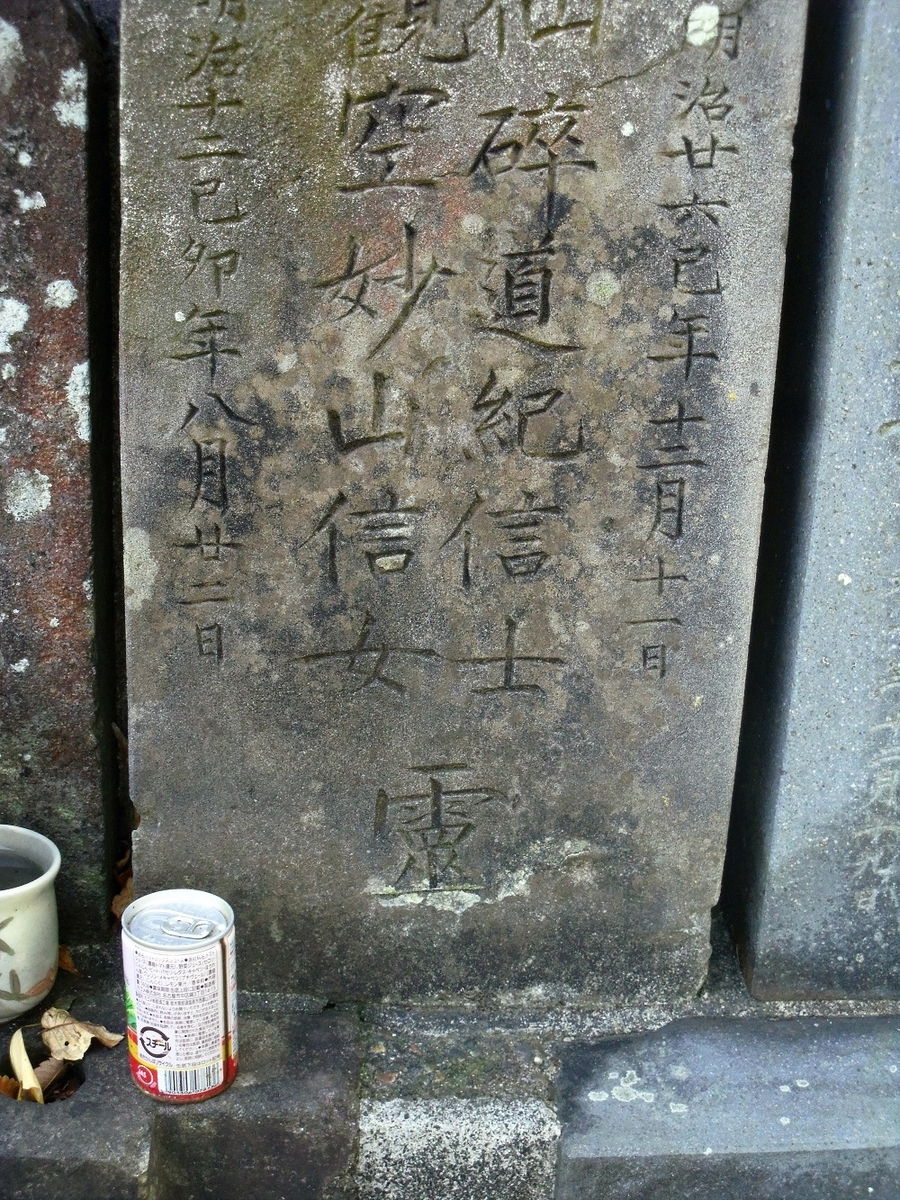 明治廿六己年十二月十一日
仙碎道紀信士
觀空妙山信女
靈
明治十二己卯年八月廿二日
スチール